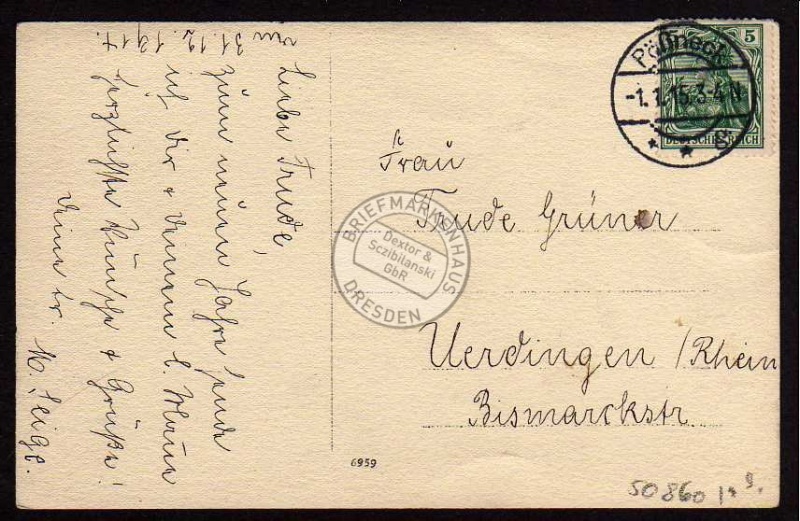 den 31.12.1914.
Liebe Trude,
zum neuen Jahre sende
ich Dir & Deinem l. Mann
herzlichste Wünsche & Grüße!
Deine tr.
Pößneck
-1.1.15.3-4 N.
5
DEUTSCHES REICH
Frau
Trude Grüner
Uerdingen /Rhein
Bismarckstr.
BRIEFMARKENHAUS
Dextor &
Sczibilanski
GbR
DRESDEN
6959
50860